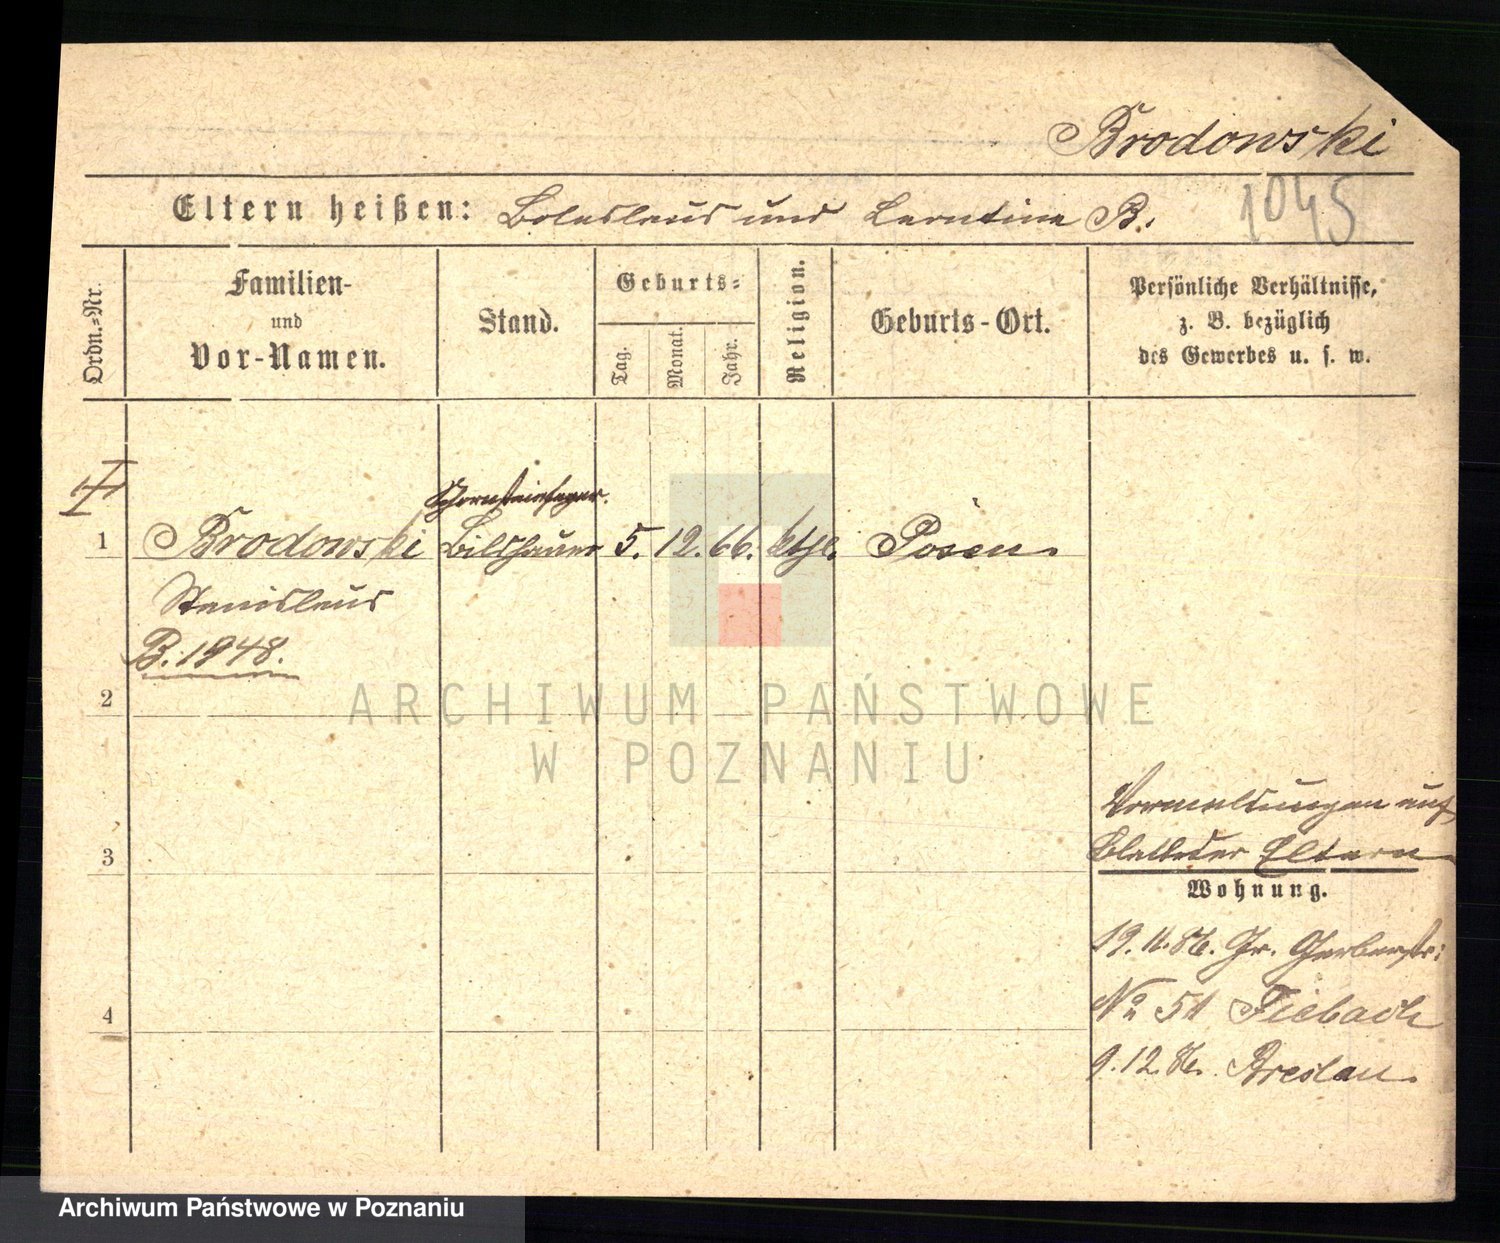 Brodowski
1045
Eltern heißen: Boleslaus und Leontine B.
Ordn.-Nr.
Familien-
und
Vor-Namen.
Stand.
Geburts-
Tag.
Monat.
Jahr.
Religion.
Geburts-Ort.
Persönliche Verhältnisse,
z. B. bezüglich
des Gewerbes u. s. w.
Schornsteinfeger.
1 Brodowski Bildhauer 5. 12. 66. kthl. Posen.
Stanislaus
B. 1948.
2
3
4
auf
Blatt der Eltern
Wohnung.
19.11.86. Gr. Gerberstr:
No 51 Fiebach
9.12.86. Breslau.
ARCHIWUM PAŃSTWOWE
W POZNANIU
Archiwum Państwowe w Poznaniu